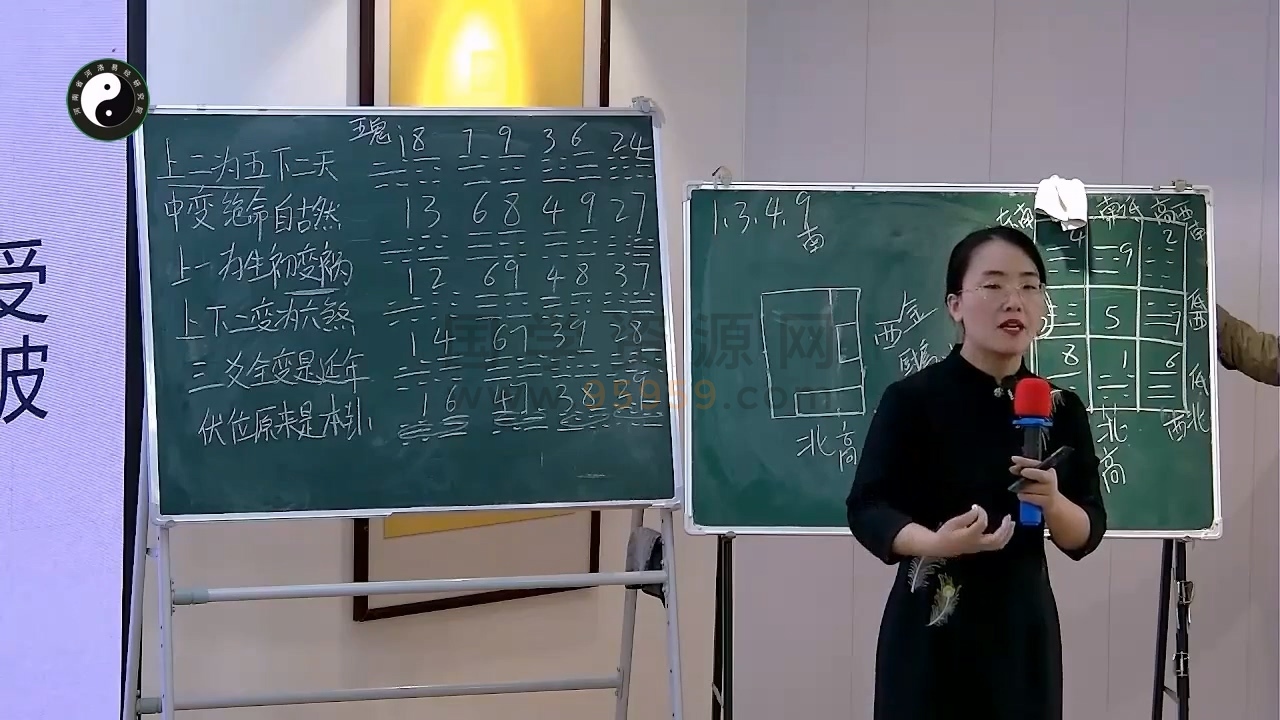 河南省河洛易经研究院
受
破
五鬼 18 79 36 24
上二为五下二天
13 68 49 27
中变绝命自古然
12 69 48 37
上一为生初变祸
14 67 39 28
上下二变为六煞
16 47 38
三爻全变是延年
伏位原来是本卦
1.3.4.9
南
西 金
北 高
东南 南低 西南
4 9 2
5 7
8 1 6
低 西
低
北 西北
高
国学资源网
www.95959.com